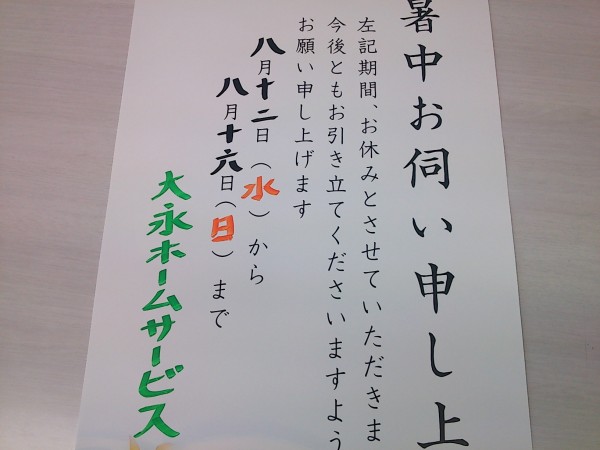 暑中お伺い申し上
左記期間、お休みとさせていただきま
今後ともお引き立てくださいますよう
お願い申し上げます
八月十二日（水）から
八月十六日（日）まで
大永ホームサービス